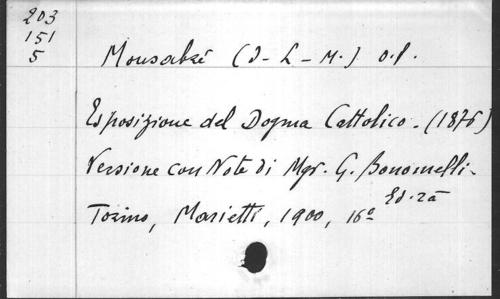 203
151
5
Monsabré (J-L-M.) o.p.
Esposizione del Dogma Cattolico. (1876)
Versione con Note di Mgr. G. Bonomelli.
Ed. 2a
Torino, Marietti, 1900, 16º